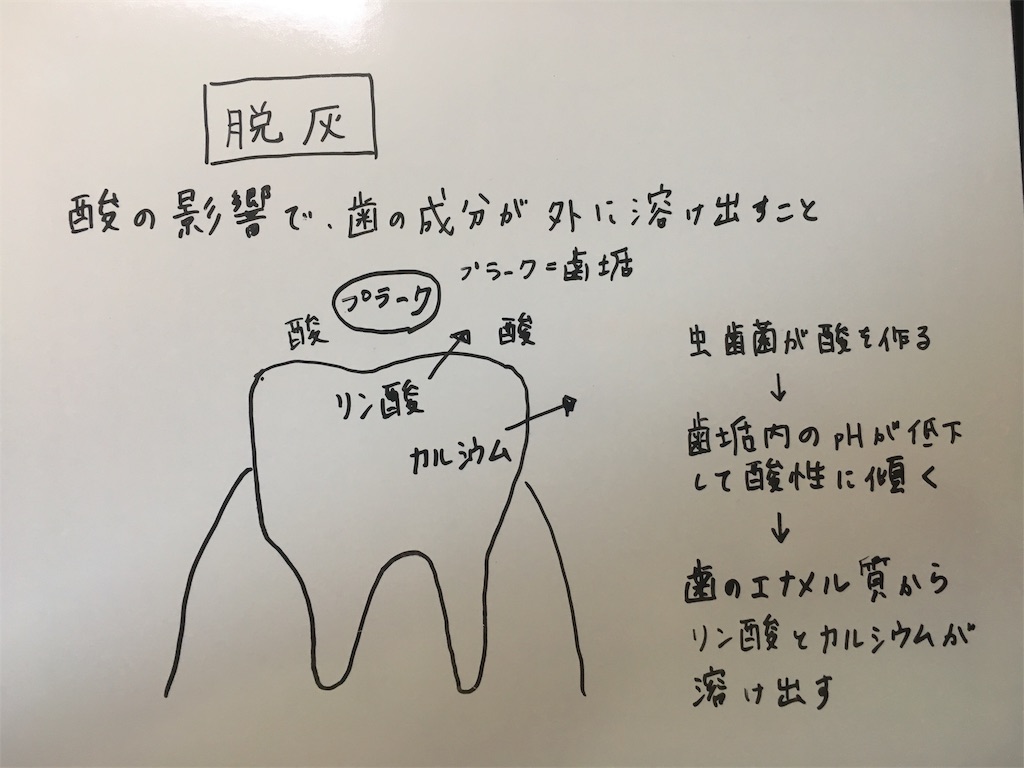 脱灰
酸の影響で、歯の成分が外に溶け出すこと
プラーク=歯垢
プラーク
酸
酸
リン酸
カルシウム
虫歯菌が酸を作る
↓
歯垢内のpHが低下
して酸性に傾く
↓
歯のエナメル質から
リン酸とカルシウムが
溶け出す